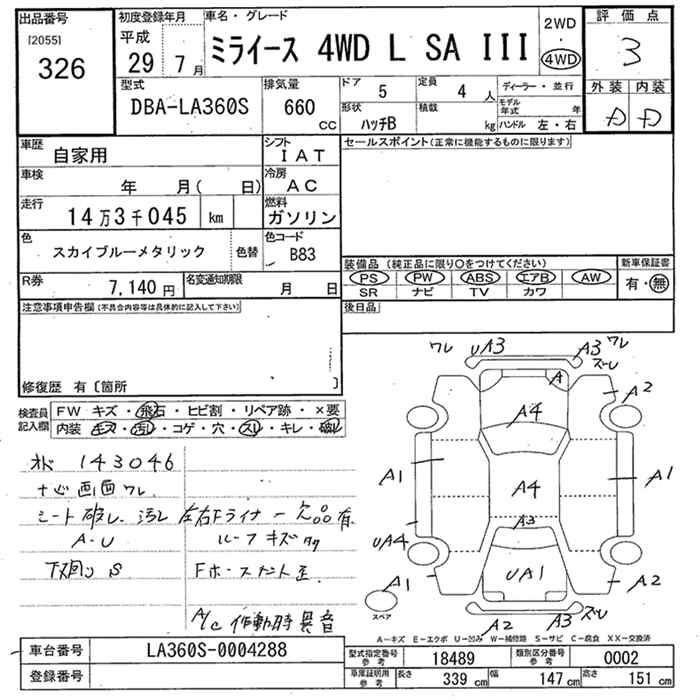 出品番号
[2055]
326
初度登録年月
平成
29年7月
車名・グレード
ミライース 4WD L SA III
2WD
・
4WD
評価点
3
外装 内装
D D
型式
DBA-LA360S
排気量
660
CC
ドア
5
定員
4人
形状
ハッチB
積載
kg
ディーラー・並行
モデル年式 年
ハンドル 左・右
車歴
自家用
シフト
IAT
車検
年 月( 日)
冷房
AC
走行
14万3千045 km
燃料
ガソリン
色
スカイブルーメタリック
色替
色コード
B83
R券
7,140円
名変通知期限
月 日
セールスポイント(正常に機能するものに限ります)
装備品(純正品に限り○をつけてください)
PS PW ABS エアB AW
SR ナビ TV カワ
新車保証書
有・無
後日品
注意事項申告欄(不具合内容等は具体的に記入して下さい)
修復歴 有〔箇所 〕
検査員
記入欄
FW キズ・飛石・ヒビ割・リペア跡・×要
内装 キズ・汚レ・コゲ・穴・スレ・キレ・破レ
143046
ワレ
シート破レ、汚レ
A-U
下回りS
ルーフキズ
A/C 作動時異音
ワレ UA3 A3 ワレ
スレ
A A2
A4
A1 A4 A1
A3
UA4
A1 UA1 A2
スペア
A2 A3 スレ
A−キズ E−エクボ U−凹み W−補修跡 S−サビ C−腐食 XX−交換済
車台番号
LA360S-0004288
登録番号
型式指定番号
参考
18489
類別区分番号
参考
0002
車庫証明用
参考
長さ 339 cm 幅 147 cm 高さ 151 cm